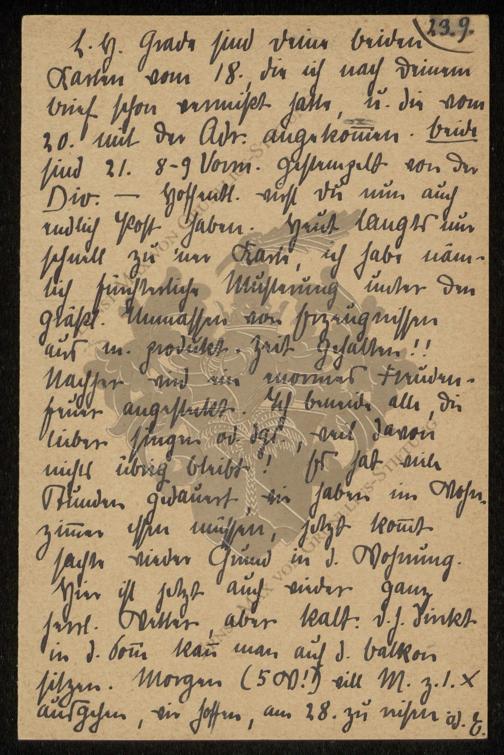 23.9.
L. H. Grade sind deine beiden
Karten vom 18., die ich nach deinem
brief schon vermißt hatte, u. die vom
20. mit der Adr. angekom̅en. beide
sind 21. 8-9 Vorm. gestempelt von der
Div. — Hoffentl. wirst du nun auch
endlich Post haben. Heut langts nur
schnell zu 'ner Karte, ich habe näm-
lich fürchterliche Musterung unter den
gräßl. Unmassen von Erzeugnissen
aus m. produkt. Zeit gehalten!!
Nachher wird ein enormes Freuden-
feuer angesteckt. Ich beneide alle, die
lieber singen od. dgl., weil davon
nichts übrig bleibt! Es hat viele
Stunden gedauert, wir haben im Wohn-
zim̅er essen müssen, jetzt kom̅t
sachte wieder Grund in d. Wohnung.
Hier ist jetzt auch wieder ganz
herrl. Wetter aber kalt. d. h. direkt
in d. Son̅e kan̅ man auf d. balkon
sitzen. Morgen (500!) will M. z. 1. X
ausgehen, wir hoffen, am 28. zu reisen
ERNST-MAX VON GRUNELIUS-STIFTUNG